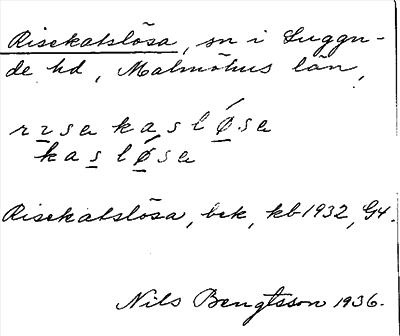 Risekatslösa, sn i Luggu-
de hd, Malmöhus län,
rısa kaslǿsa
kaslǿsa
Risekatslösa, bek, kb 1932, G4.
Nils Bengtsson 1936.